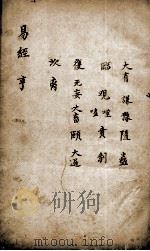 大有 謙豫隨蠱
臨 观 噬嗑 賁 剝
復 无妄 大畜 頤 大過
坎 离
易經 亨